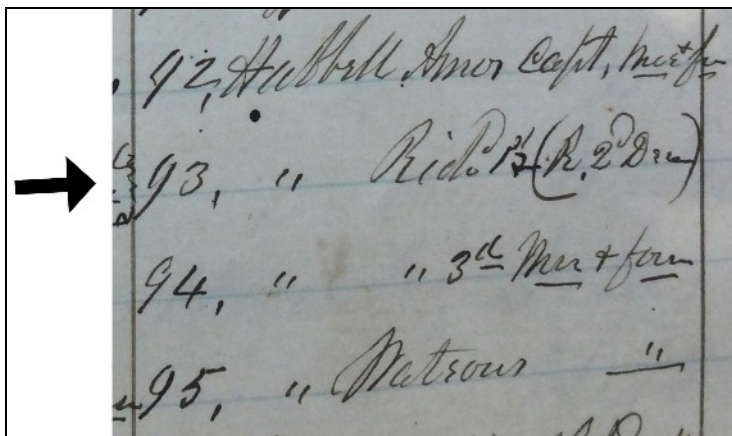 92, Hubbell Amos Capt, Mer & fou
93, " Richd 1st (R, 2d Dea)
94, " " 3d Mer & fou
95, " Watrous "